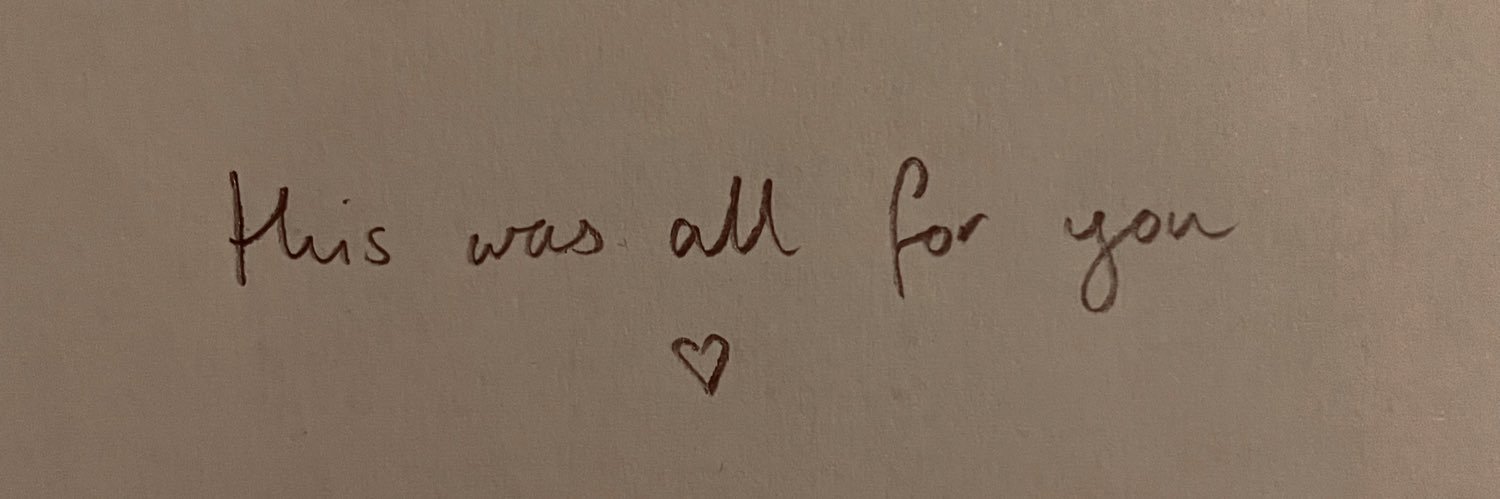 this was all for you
♡